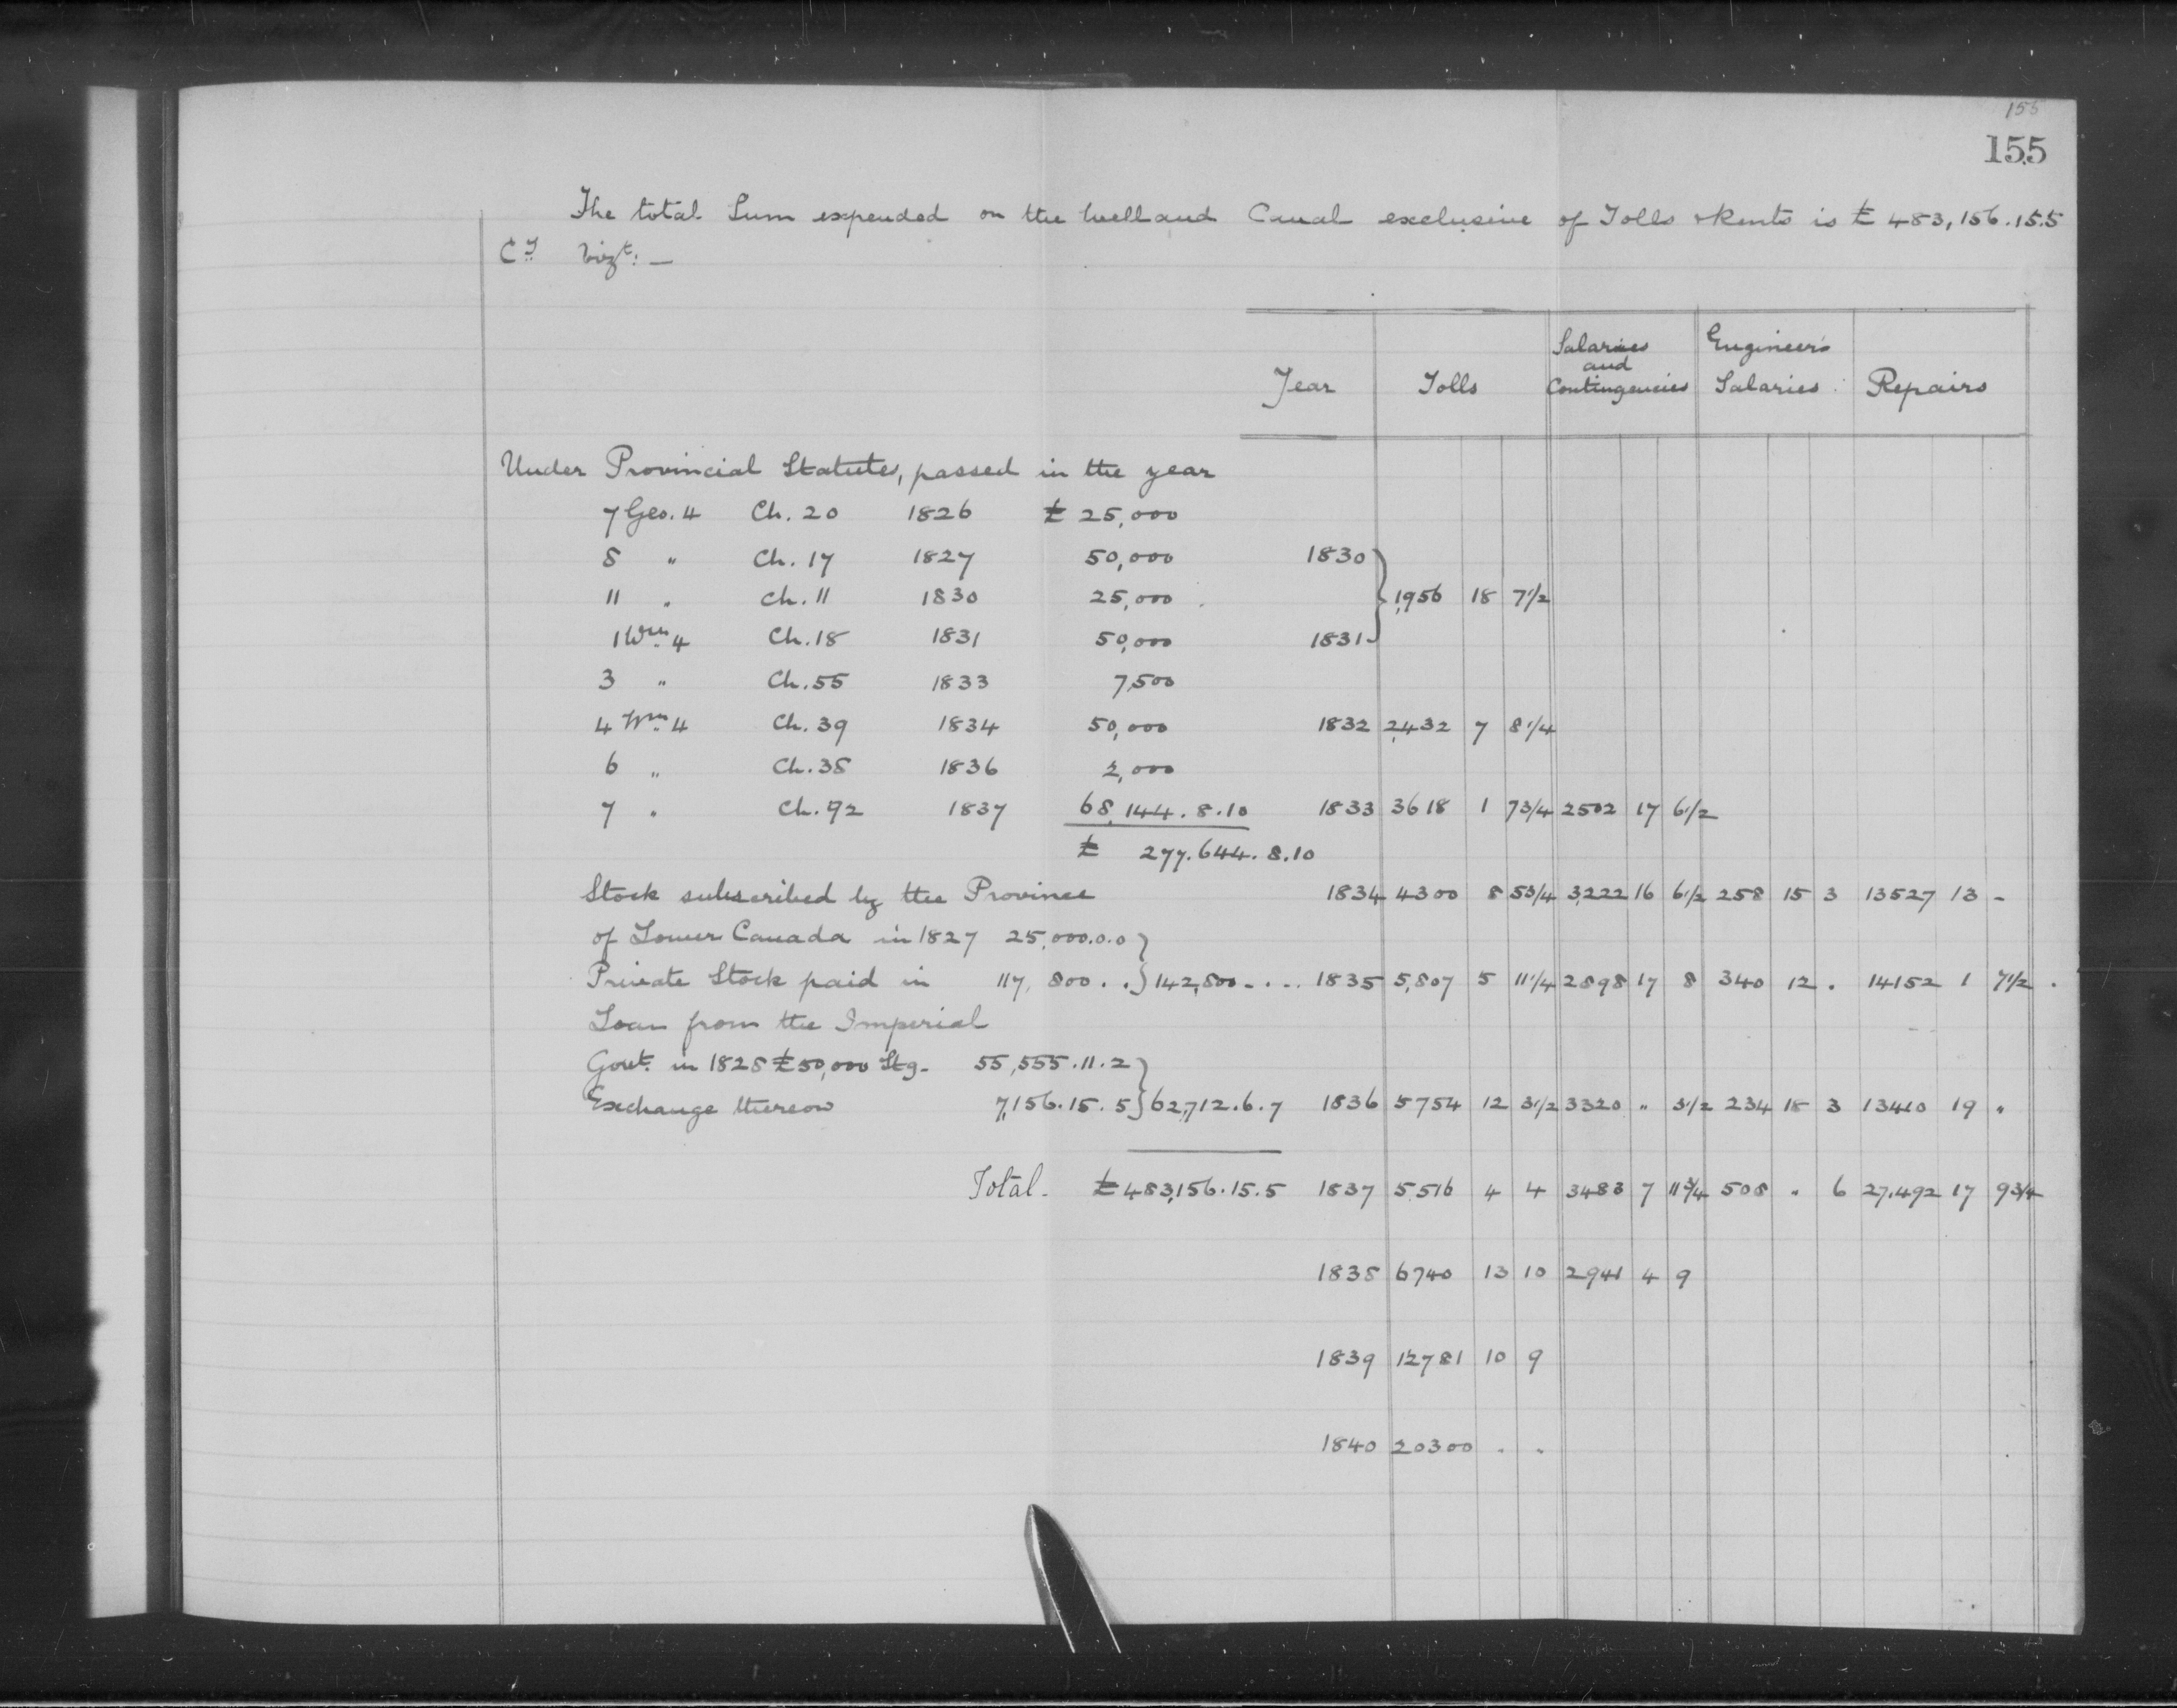 155
155
The total Sum expended on the Welland Canal exclusive of Tolls & Rents is £ 483,156.15.5
Cy Vizt: —
Year Tolls Salaries and Contingencies Engineer's Salaries Repairs
Under Provincial Statutes, passed in the year
7 Geo. 4 Ch. 20 1826 £ 25,000
8 " Ch. 17 1827 50,000 1830
11 " Ch. 11 1830 25,000 } 1,956 18 7 1/2
1 Wm 4 Ch. 18 1831 50,000 1831
3 " Ch. 55 1833 7,500
4 Wm 4 Ch. 39 1834 50,000 1832 2,432 7 8 1/4
6 " Ch. 38 1836 2,000
7 " Ch. 92 1837 68,144.8.10 1833 3618 1 7 3/4 2502 17 6 1/2
£ 277.644.8.10
Stock subscribed by the Province 1834 4300 8 5 3/4 3,222 16 6 1/2 258 15 3 13527 13 -
of Lower Canada in 1827 25,000.0.0 }
Private Stock paid in 117,800 . . } 142,800 - . - . 1835 5,807 5 11 1/4 2898 17 8 340 12 . 14152 1 7 1/2 .
Loan from the Imperial
Govt. in 1828 £50,000 Stg. 55,555.11.2 }
Exchange thereon 7,156.15.5 } 62,712.6.7 1836 5754 12 3 1/2 3320 " 3 1/2 234 18 3 13410 19 "
Total. £483,156.15.5 1837 5516 4 4 3483 7 11 3/4 508 " 6 27,492 17 9 3/4
1838 6740 13 10 2941 4 9
1839 12781 10 9
1840 20300 . .